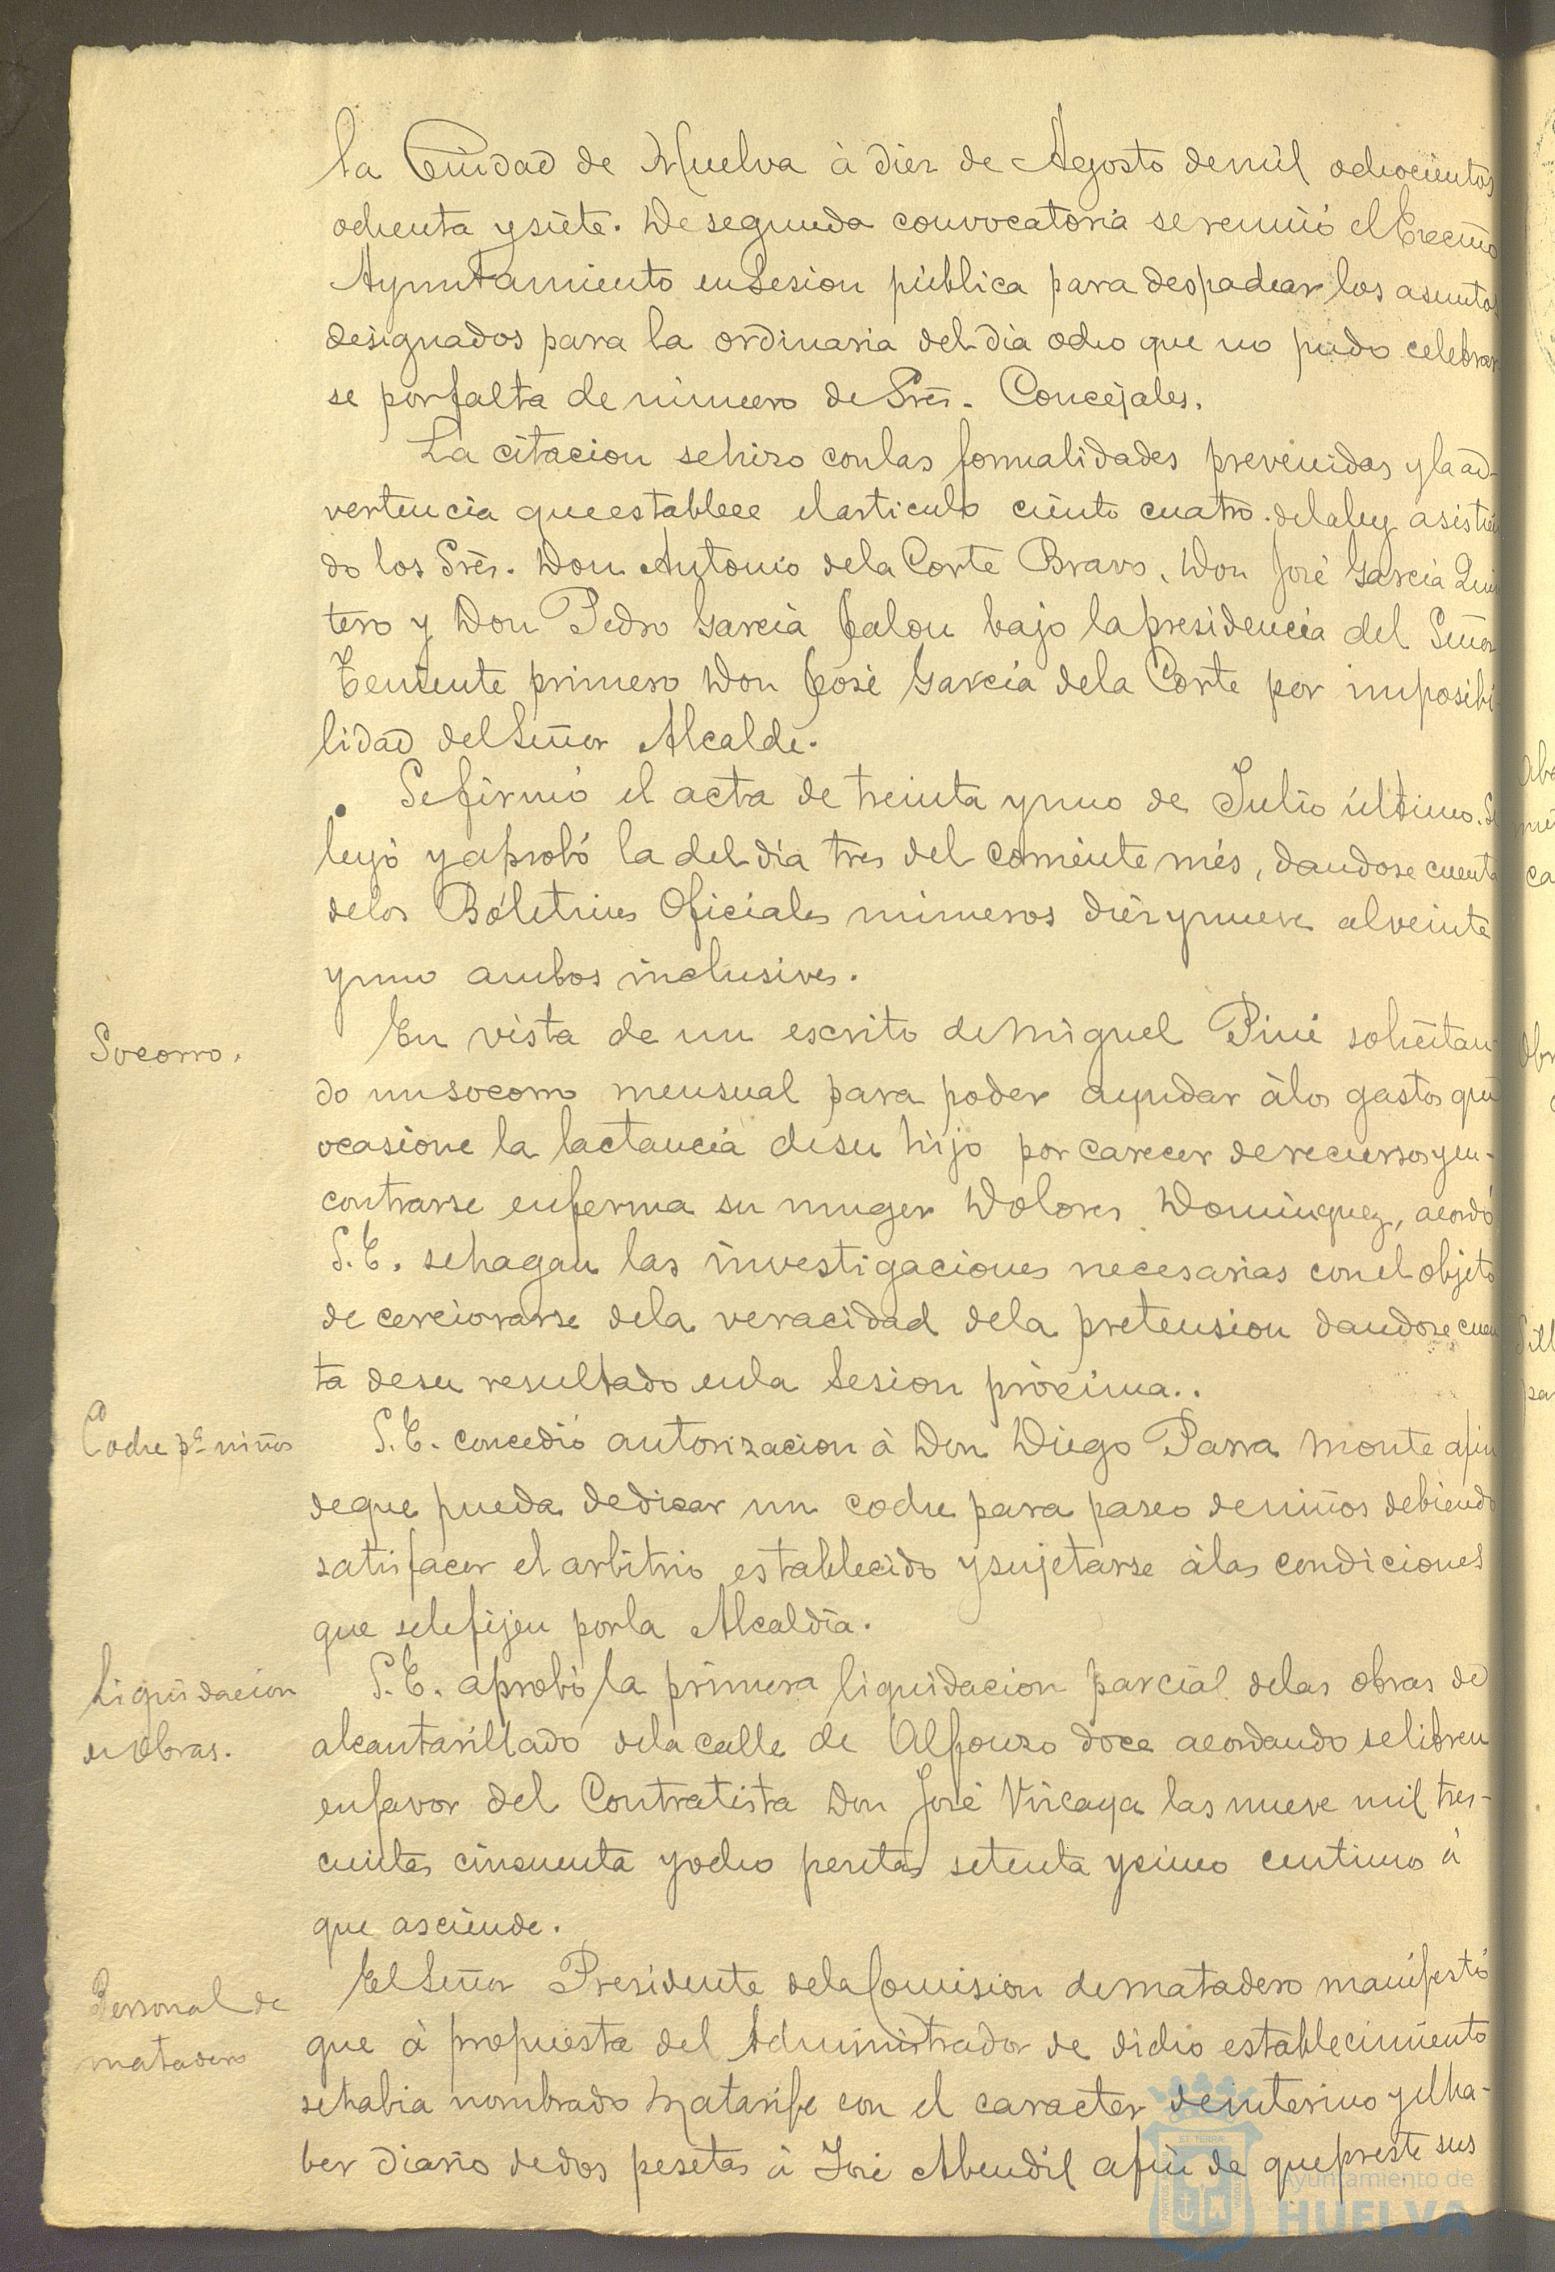 la Ciudad de Huelva á diez de Agosto de mil ochocientos
ochenta y siete. De segunda convocatoria se reunió el Excmo
Ayuntamiento en Sesion pública para despachar los asuntos
designados para la ordinaria del dia ocho que no pudo celebrar
se por falta de número de Sres. Concejales.
La citacion se hizo con las formalidades prevenidas y la ad-
vertencia que establece el articulo ciento cuatro de la ley asistien
do los Sres. Don Antonio de la Corte Bravo, Don José Garcia Quin
tero y Don Pedro Garcia Jalon bajo la presidencia del Señor
Teniente primero Don José Garcia de la Corte por imposibi
lidad del Señor Alcalde.
Se firmó el acta de treinta y uno de Julio último. Se
leyó y aprobó la del día tres del corriente més, dandose cuenta
de los Boletines Oficiales números diez y nueve al veinte
y uno ambos inclusives.
Socorro.
En vista de un escrito de Miguel Piné solicitan
do un socorro mensual para poder ayudar á los gastos que
ocasione la lactancia de su hijo por carecer de recursos y en-
contrarse enferma su muger Dolores Dominguez, acordó
S.E. se hagan las investigaciones necesarias con el objeto
de cerciorarse de la veracidad de la pretension dandose cuen
ta de su resultado en la Sesion próxima..
Coche pª niños
S.E. concedió autorizacion á Don Diego Parra Monte afin
de que pueda dedicar un coche para paseo de niños debiendo
satisfacer el arbitrio establecido y sujetarse á las condiciones
que se le fijen por la Alcaldía.
Liquidacion
en obras.
S.E. aprobó la primera liquidacion parcial de las obras de
alcantarillado de la calle de Alfonzo doce acordando se libren
en favor del Contratista Don José Vizcaya las nueve mil tres-
cientas cincuenta y ocho pesetas setenta y cinco centimos á
que asciende.
Personal de
matadero
El Señor Presidente de la Comision de matadero manifestó
que á propuesta del Administrador de dicho establecimiento
se habia nombrado Matarife con el caracter de interino y el ha-
ber diario de dos pesetas á José Abendil afin de que preste sus
Ayuntamiento de
HUELVA